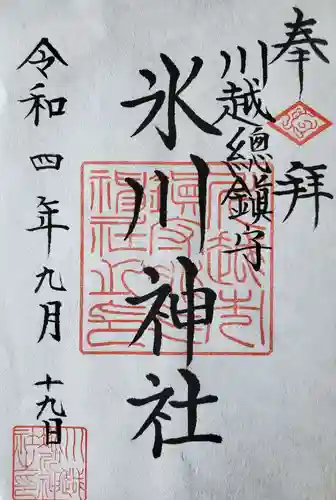 奉拝
川越總鎮守
氷川神社
令和四年九月十九日